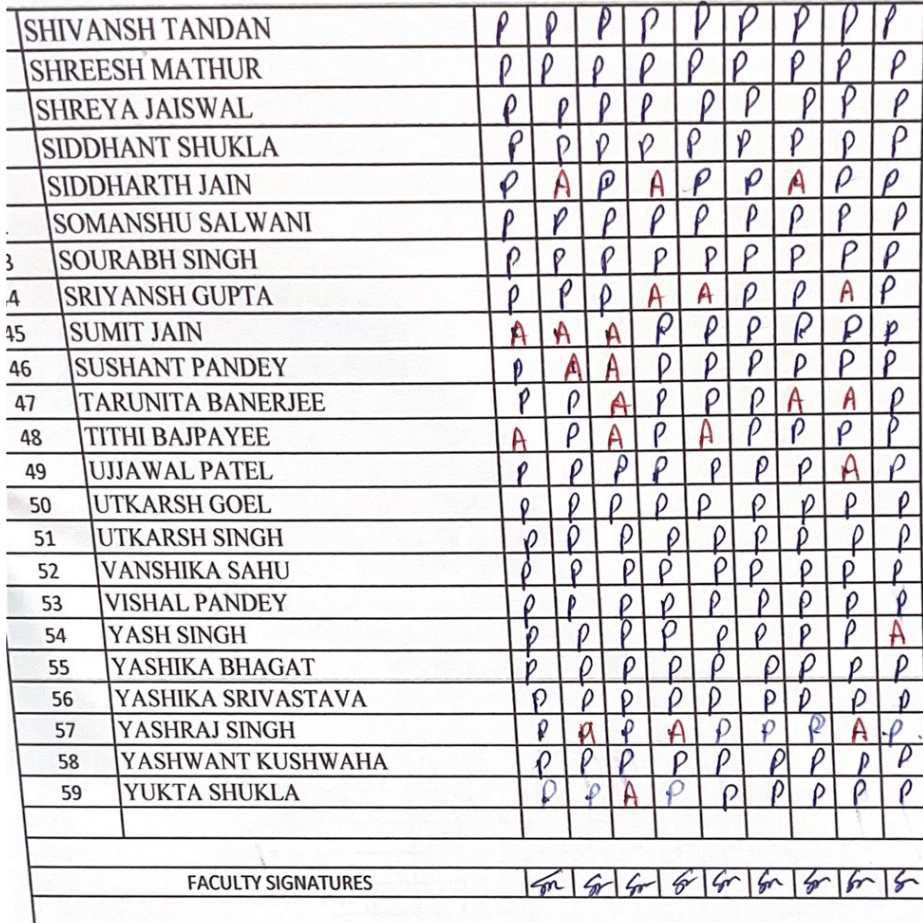 SHIVANSH TANDAN P P P P P P P P P
SHREESH MATHUR P P P P P P P P P
SHREYA JAISWAL P P P P P P P P P
SIDDHANT SHUKLA P P P P P P P P P
SIDDHARTH JAIN P A P A P P A P P
SOMANSHU SALWANI P P P P P P P P P
3 SOURABH SINGH P P P P P P P P P
4 SRIYANSH GUPTA P P P A A P P A P
45 SUMIT JAIN A A A P P P P P P
46 SUSHANT PANDEY P A A P P P P P P
47 TARUNITA BANERJEE P P A P P P A A P
48 TITHI BAJPAYEE A P A P A P P P P
49 UJJAWAL PATEL P P P P P P P A P
50 UTKARSH GOEL P P P P P P P P P
51 UTKARSH SINGH P P P P P P P P P
52 VANSHIKA SAHU P P P P P P P P P
53 VISHAL PANDEY P P P P P P P P P
54 YASH SINGH P P P P P P P P A
55 YASHIKA BHAGAT P P P P P P P P P
56 YASHIKA SRIVASTAVA P P P P P P P P P
57 YASHRAJ SINGH P A P A P P P A P
58 YASHWANT KUSHWAHA P P P P P P P P P
59 YUKTA SHUKLA P P A P P P P P P
FACULTY SIGNATURES